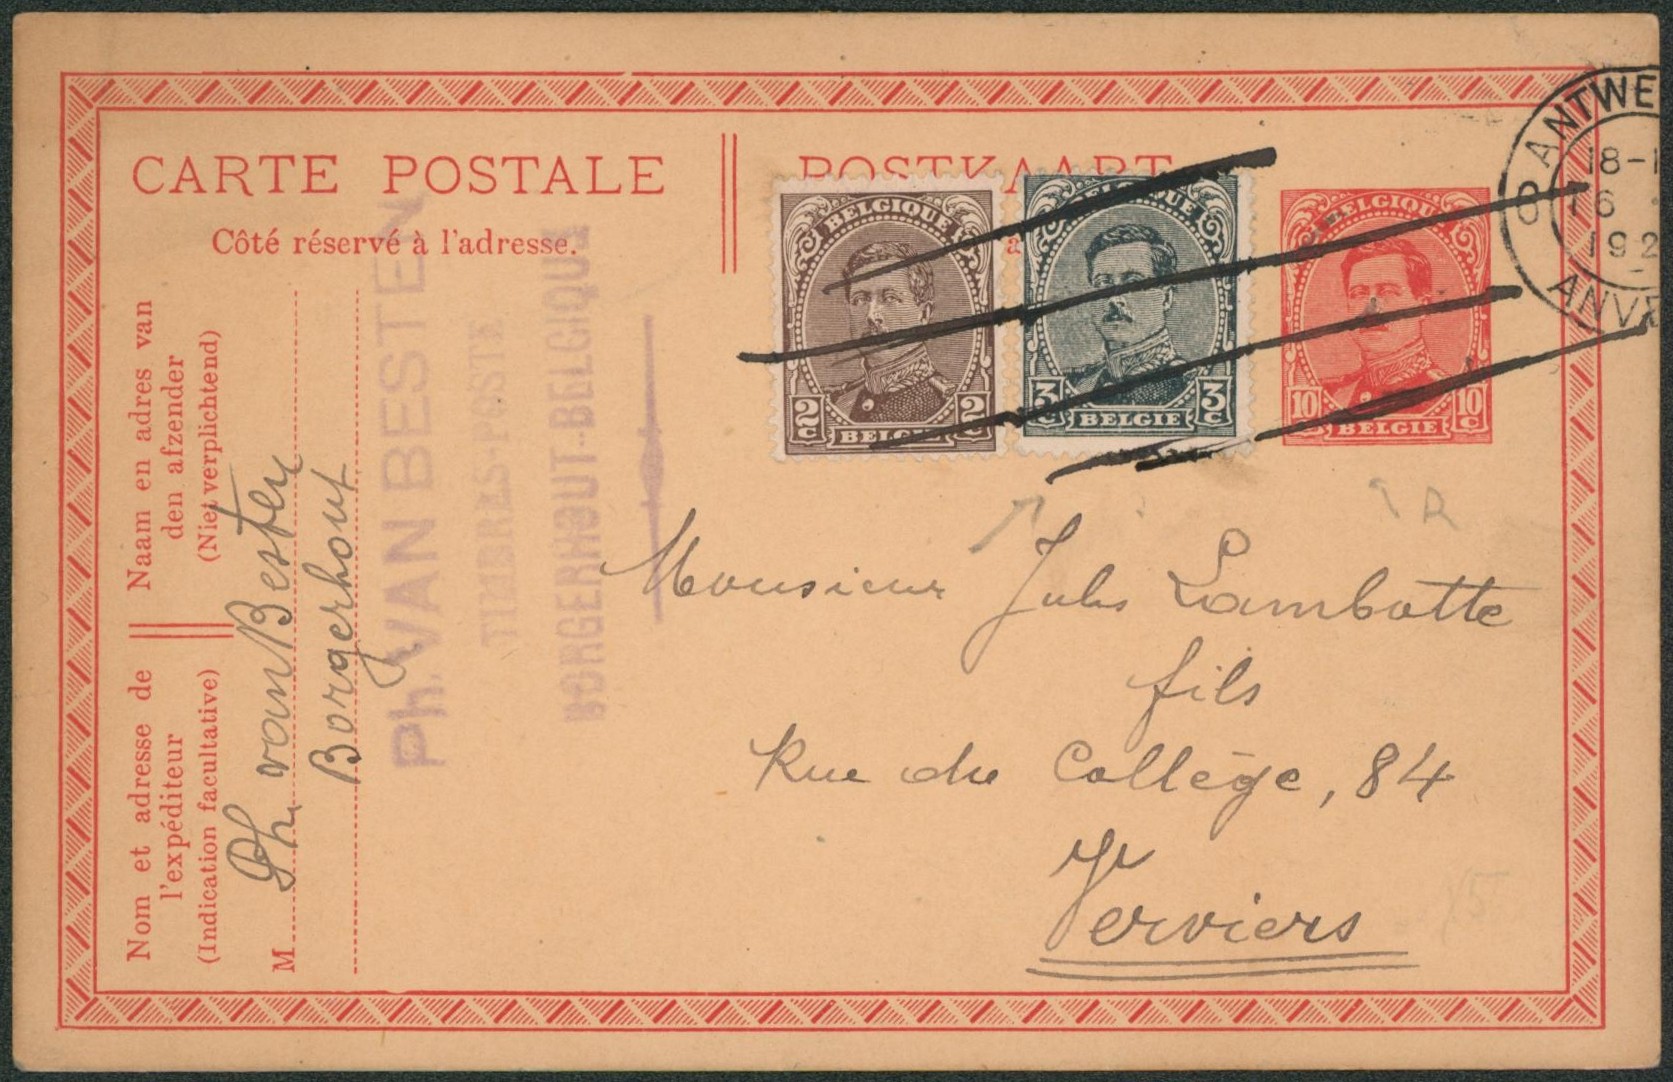 CARTE POSTALE
POSTKAART
Côté réservé à l'adresse.
Naam en adres van
den afzender
(Niet verplichtend)
Nom et adresse de
l'expéditeur
(Indication facultative)
M
Ph. van Besten
Borgerhout
Ph. VAN BESTEN
TIMBRES-POSTE
BORGERHOUT-BELGIQUE
BELGIQUE
2c 2c
BELGIE
BELGIQUE
3c 3c
BELGIE
BELGIQUE
10c 10c
BELGIE
ANTWE
18-1
1926
ANVE
R
Monsieur Jules Lambotte
fils
Rue du Collège, 84
Verviers
15